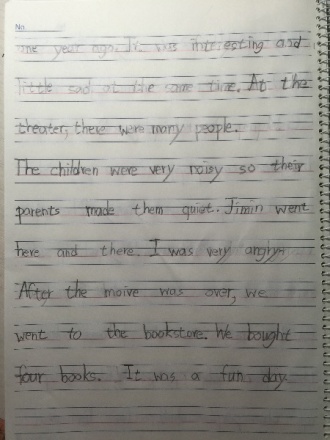 No.
one year ago. It was interesting and
little sad at the same time. At the
theater, there were many people.
The children were very noisy so their
parents made them quiet. Jimin went
here and there. I was very angry.
After the moive was over, we
went to the bookstore. We bought
four books. It was a fun day